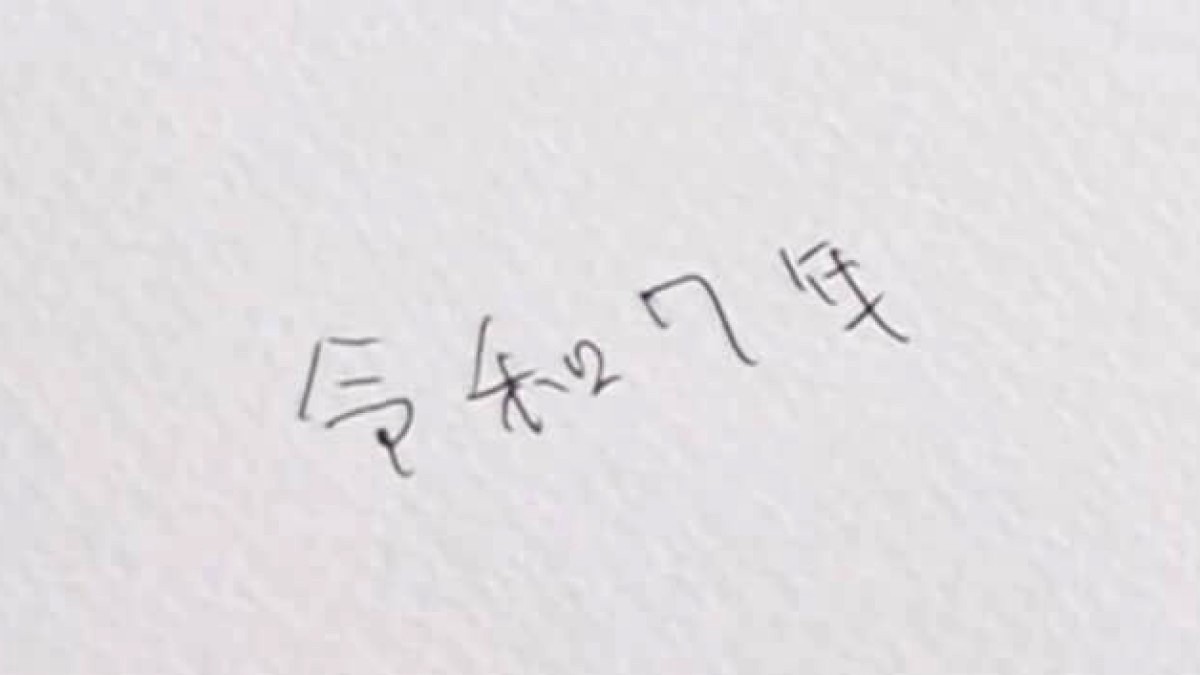 令和7年